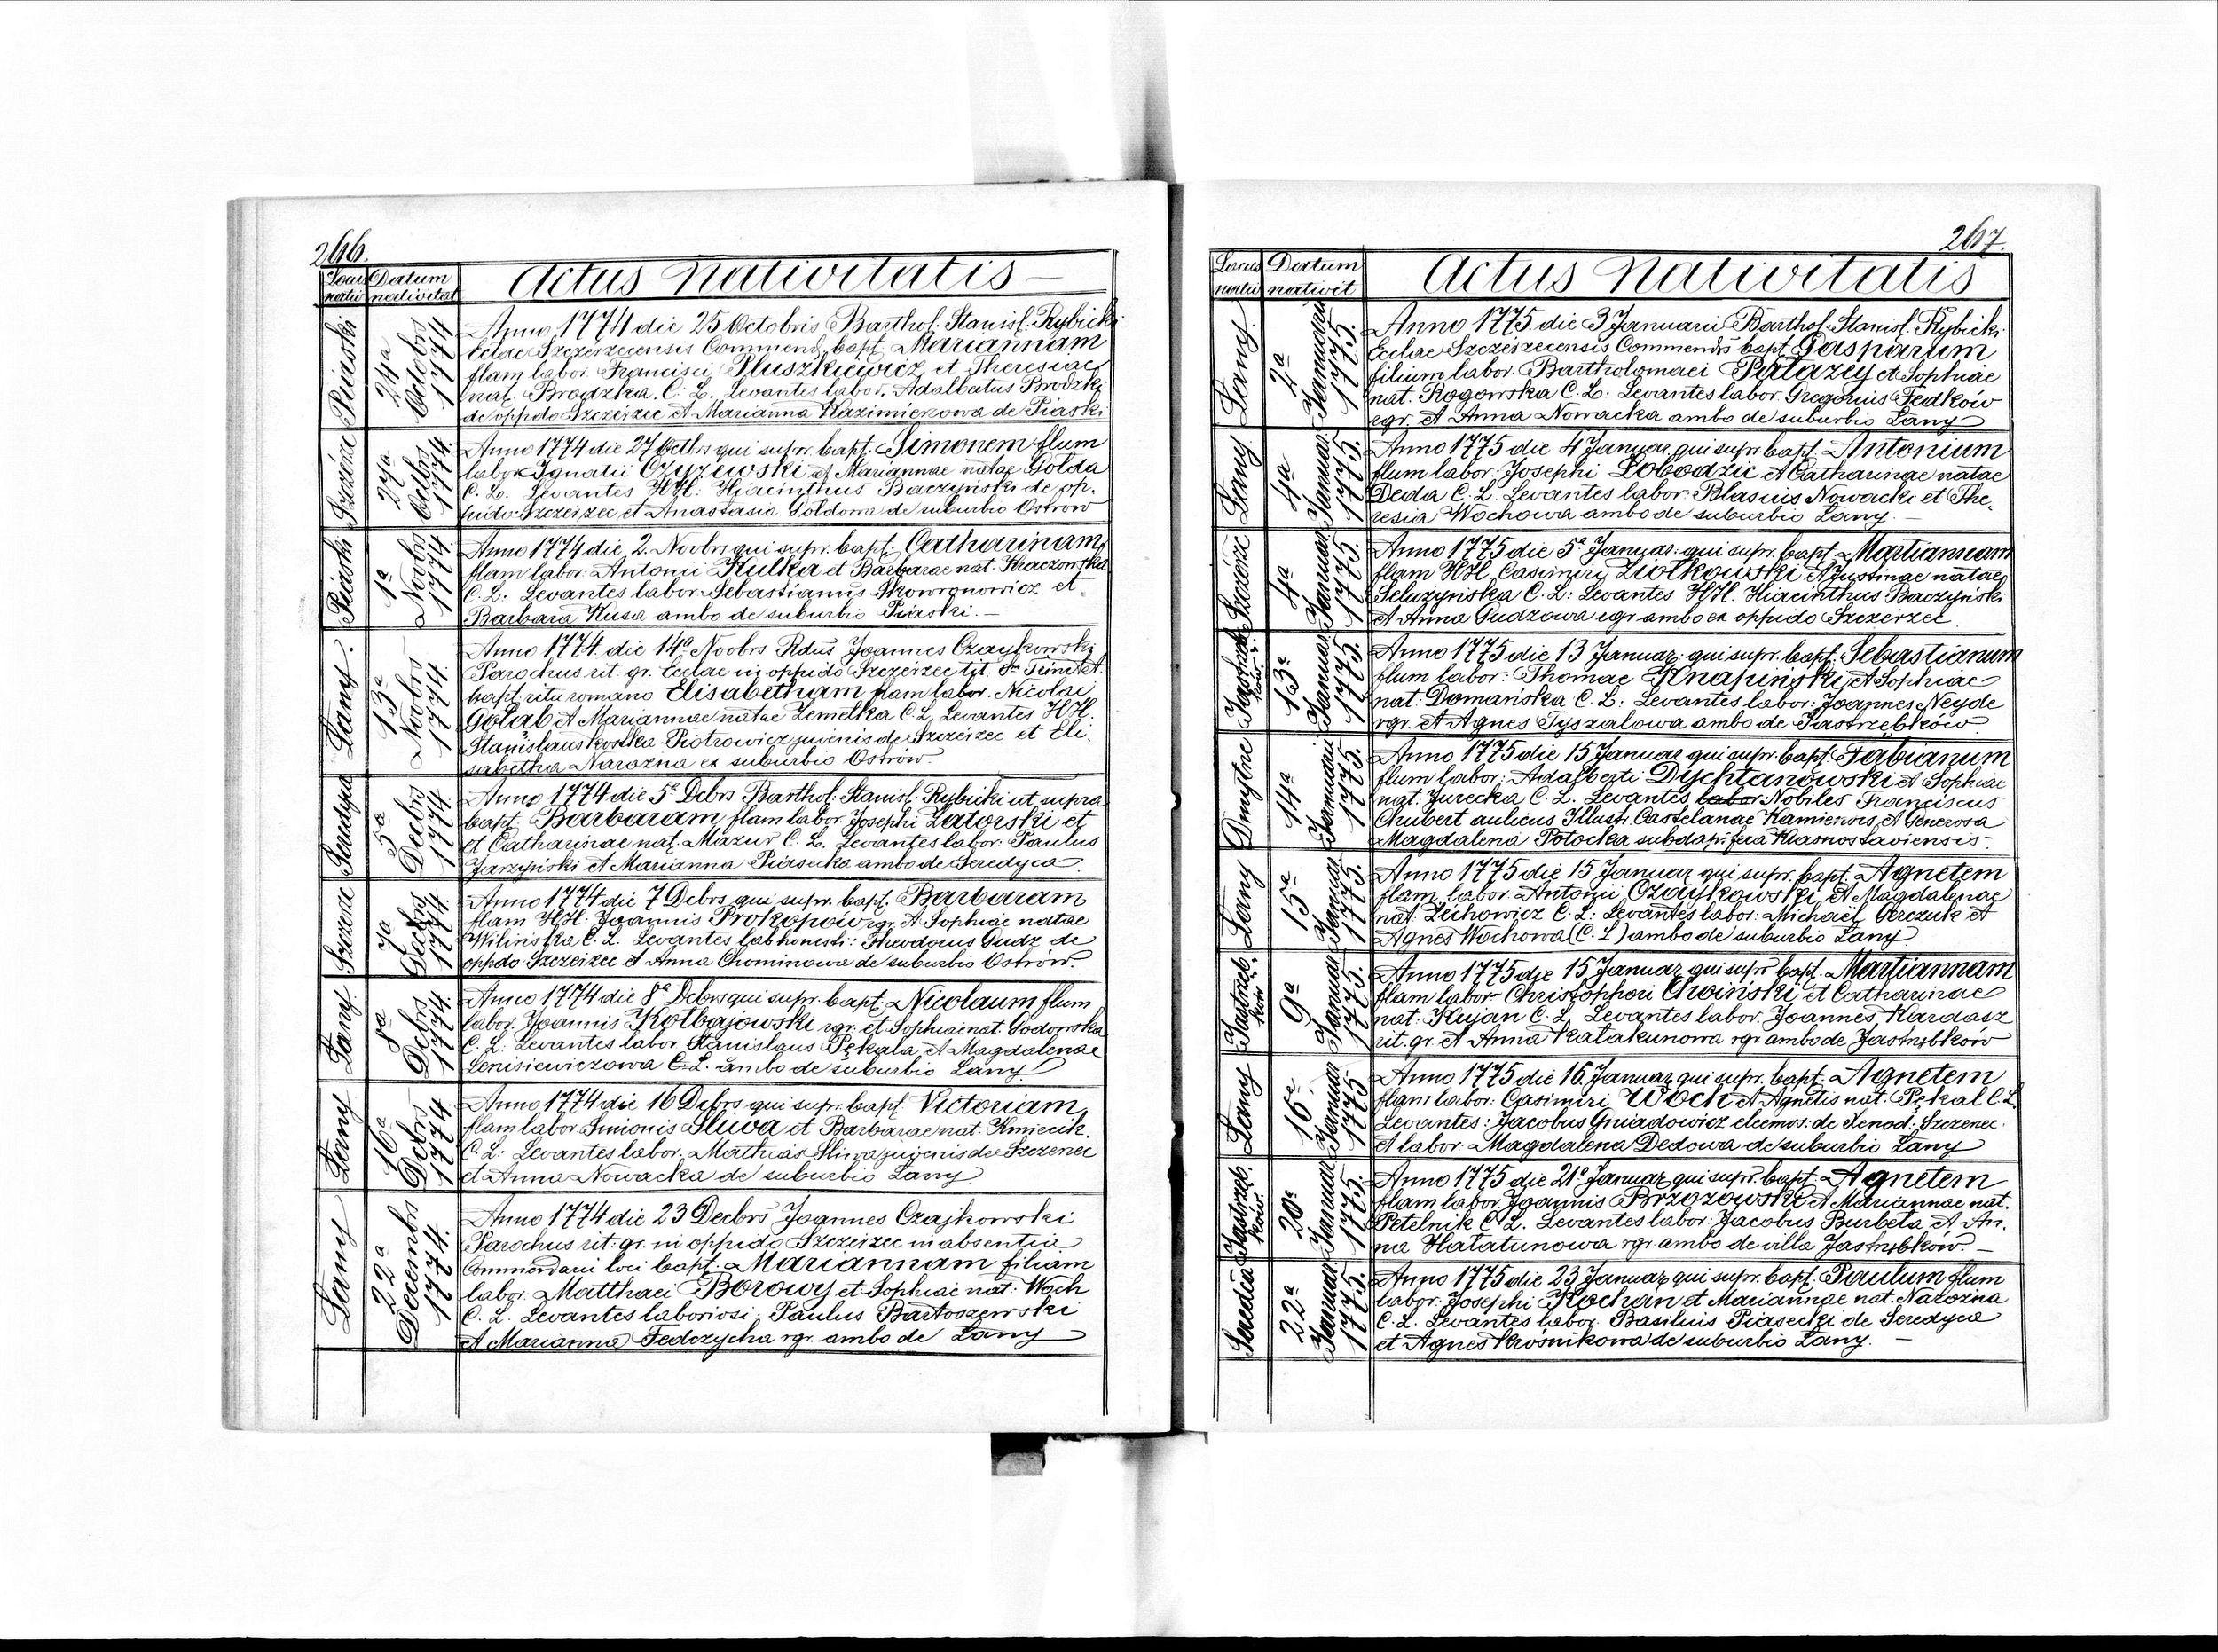 266.
Locus natiu
Datum nativitat
Actus Nativitatis
Piaski
24a Octobrs 1774
Anno 1774 die 25 Octobris Barthol. Stanisl. Rybicki
Eclae Szczerzecensis Commend. bapt. Mariannam
flam labor. Francisci Pluszkiewicz et Theresiae
nat. Brodzka. C. L. Levantes labor. Adalbertus Brodzki
de oppdo Szczerzec et Marianna Kazimierzowa de Piaski
27a Octbrs 1774.
Anno 1774 die 27 Octbrs qui supr. bapt. Simonem flum
labor. Ignatii Czyżewski et Mariannae natae Golda
C. L. Levantes HH: Hiacinthus Baczyński de op.
pido Szczerzec et Anastasia Goldowa de suburbio Ostrow
Piaski
1a Novbrs 1774.
Anno 1774 die 2. Novbrs qui supr. bapt. Catharinam,
flam labor: Antonii Kulka et Barbarae nat. Kraczowska
C. L. Levantes labor. Sebastianus Skowronowicz et
Barbara Kusa ambo de suburbio Piaski. —
Łany.
13a Novbrs 1774.
Anno 1774. die 14a Novbrs Rdus Joannes Czaykowski
Parochus rit. gr. Eclae in oppido Szczerzec tit. S.
bapt. ritu romano Elisabetham flam labor. Nicolai
Gołab et Mariannae natae Zemełka C. L. Levantes HH.
Stanislaus Kostka Piotrowicz juvenis de Szczerzec et Eli.
sabetha Narozna ex suburbio Ostrów.
5a Decbrs 1774
Anno 1774 die 5a Debrs Barthol: Stanisl. Rybicki ut supra
bapt. Barbaram flam labor. Josephi Zatorski et
et Catharinae nat. Mazur C. L. Levantes labor: Paulus
Jarzyński et Marianna Piasecka ambo de Seredyca.
7a Decbrs 1774.
Anno 1774 die 7 Debrs qui supr. bapt. Barbaram
flam HH. Joannis Prokopów rgr. et Sophiae natae
Wilińska C. L. Levantes lab honesti: Theodorus Gudz de
oppdo Szczerzec et Anna Chominowa de suburbio Ostrów.
Łany
8a Debrs 1774.
Anno 1774 die 8a Debrs qui supr. bapt. Nicolaum flum
labor. Joannis Kołbajowski rgr. et Sophiae nat. Godowska
C. L. Levantes labor Stanislaus Pękala, et Magdalenae
Lenisiewiczowa C. L. ambo de suburbio Łany.
Łany
16a Debrs 1774
Anno 1774 die 16 Debrs qui supr. bapt. Victoriam,
flam labor Simonis Sliwa et Barbarae nat. Kmiecik.
C. L: Levantes labor. Mathias Sliwa juvenis de Szczerzec
et Anna Nowacka de suburbio Łany.
Łany
22a Decembrs 1774.
Anno 1774 die 23 Decbrs Joannes Czajkowski
Parochus rit: gr. in oppido Szczerzec in absentia
Commendani loci bapt. Mariannam filiam
labor. Matthaei Borowy et Sophiae nat: Woch
C. L. Levantes laboriosi: Paulus Bartoszewski
et Marianna Fedczycha rgr. ambo de Łany
267.
Locus natiu
Datum nativit
Actus Nativitatis
Łany.
2a Januarii 1775.
Anno 1775. die 3 Januarii Barthol. Stanisl. Rybicki
Ecclae Szczerzecensis Commends bapt Gasparum
filium labor. Bartholomaei Pałazey et Sophiae
nat. Rogowska C. L. Levantes labor. Gregorius Fedków
rgr. et Anna Nowacka ambo de suburbio Łany
Łany
4a Januar. 1775.
Anno 1775 die 4 Januar. qui supr. bapt. Antonium
flum labor. Josephi Łobodzic et Catharinae natae
Deda C. L. Levantes labor. Blasius Nowacki et The.
resia Wochowa ambo de suburbio Łany. —
4a Januar 1775.
Anno 1775 die 5a Januar. qui supr. bapt. Mariannam
flam HH Casimiri Ziołkowski et Justinae natae
C. L: Levantes HH. Hiacinthus Baczyński
et Anna Gudzowa rgr ambo ex oppido Szczerzec.
Jastrzeb ków.
13a Januar 1775.
Anno 1775 die 13 Januar. qui supr. bapt. Sebastianum
flum labor: Thomae Knapiński et Sophiae
nat. Domańska C. L: Levantes labor: Joannes Neyde
rgr. et Agnes Tyszalowa ambo de Jastrzębków.
Dmytre
14a Januarii 1775.
Anno 1775 die 15 Januar qui supr. bapt. Fabianum
flum labor: Adalberti Dychtanowski et Sophiae
nat: Jurecka C. L. Levantes labor Nobiles Franciscus
Chubert aulicus Illustr. Castelanae Kamiensis et Generosa
Magdalena Potocka subdapifera Krasnostaviensis. —
Łany
15a Januar 1775.
Anno 1775 die 15 Januar qui supr. bapt. Agnetem
flam labor. Antonii Czaykowski, et Magdalenae
nat. Zechowicz C. L: Levantes labor: Michael et
Agnes Wochowa (C. L) ambo de suburbio Łany
Jastrzeb ków.
9a Januar 1775.
Anno 1775 die 15 Januar, qui supr bapt. Mariannam
flam labor Christophori et Catharinae
nat: Kujan C. L. Levantes labor. Joannes Kardasz
rit. gr. et Anna Kałakunowa rgr ambo de Jastrzębków
Łany
16a Januar 1775
Anno 1775 die 16. Januar, qui supr. bapt. Agnetem
flam labor: Casimiri Woch et Agnetis nat. Pękal C. L.
Levantes: Jacobus Gniadowicz eleemos: de Xenod: Szczerzec.
et labor. Magdalena Dedowa de suburbio Łany
Jastrzeb. ków.
20a Januar 1775.
Anno 1775 die 21a Januar qui supr. bapt. Agnetem
flam labor. Joannis Brzozowski et Mariannae nat.
Petelnik C. L. Levantes labor: Jacobus Burbeta et An.
na Hałatunowa rgr ambo de villa Jastrzębków. —
22a Januar 1775.
Anno 1775 die 23 Januar, qui supr. bapt. Paulum flum
labor: Josephi Kochan et Mariannae nat. Narozna
C. L. Levantes labor. Basilius Piasecki de Seredyca
et Agnes Krośnikowa de suburbio Łany. —